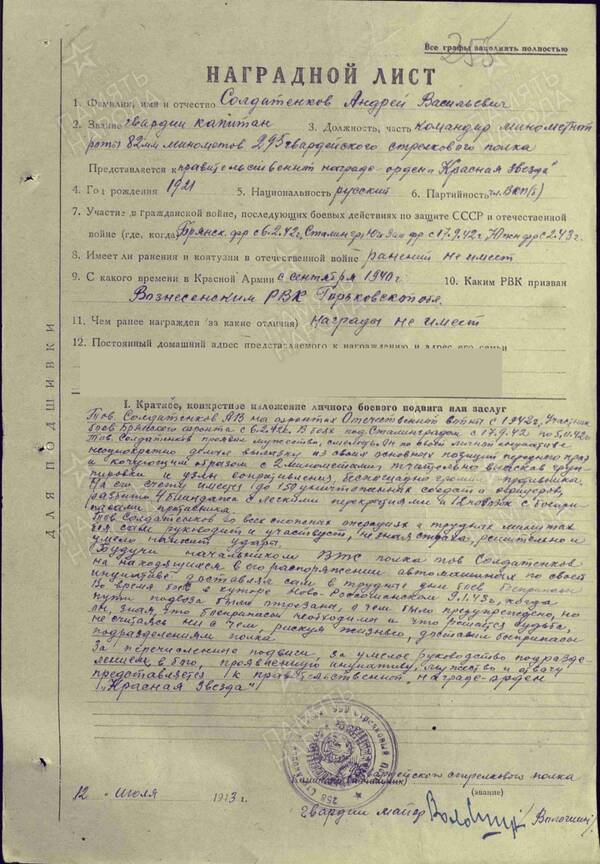 Все графы заполнять полностью
255
НАГРАДНОЙ ЛИСТ
1. Фамилия, имя и отчество Солдатенков Андрей Васильевич
2. Звание гвардии капитан 3. Должность, часть командир минометной
роты 82мм минометов 295 гвардейского стрелкового полка
Представляется к правительственной награде-орден "Красная Звезда"
4. Год рождения 1911 5. Национальность русский 6. Партийность чл. ВКП(б)
7. Участие в гражданской войне, последующих боевых действиях по защите СССР и отечественной
войне (где, когда) Брянск. фр с 6.2.42г, Сталингр, Юго Зап фр с 17.9.42г, Южн фр с 2.43г.
8. Имеет ли ранения и контузии в отечественной войне ранений не имеет
9. С какого времени в Красной Армии с сентября 1940г 10. Каким РВК призван
Вознесенским РВК Горьковской обл.
11. Чем ранее награжден (за какие отличия) награды не имеет
12. Постоянный домашний адрес представляемого к награждению и адрес его семьи
I. Краткое, конкретное изложение личного боевого подвига или заслуг
Тов. Солдатенков АВ на фронтах Отечественной войны с 1942г, Участник
боев Брянского фронта с 6.2.42г. В боях под Сталинградом с 17.9.42 по
Тов. Солдатенков проявил мужество, смелость. Он по своей личной инициативе
неоднократно делал вылазку из своих основных позиций переднего края
и кочующим образом с 2 минометами тщательно выискав груп-
пировки и узлы сопротивления беспощадно громил противника.
На его счету имеется до 150 уничтоженных солдат и офицеров,
разбито 4 блиндажа с легкими перекрытиями и повозок с боепри-
пасами противника.
Тов Солдатенков во всех сложных операциях и трудных моментах
сам руководит и участвует, не зная страха, решительно и
умело наносит удары
Будучи начальником ВТС полка тов Солдатенков
на находящихся в его распоряжении автомашинах по своей
инициативе доставлял сам в трудные дни боев боеприпасы
Во время боев в хуторе Ново-Россошанском 9.1.43г, когда
пути подвоза были отрезаны, о чем было предупреждено, но
он, зная, что боеприпасы необходимы и что решается судьба,
не считаясь ни с чем, рискуя жизнью, доставил боеприпасы
подразделениям полка.
За перечисленные подвиги, за умелое руководство подразде-
лением в бою, проявленную инициативу, мужество и отвагу
представляется к правительственной награде-орден
"Красная Звезда"
гвардейского стрелкового полка
(звание)
12 июля 1943 г.
гвардии майор
ДЛЯ ПОДШИВКИ
ПАМЯТЬ НАРОДА